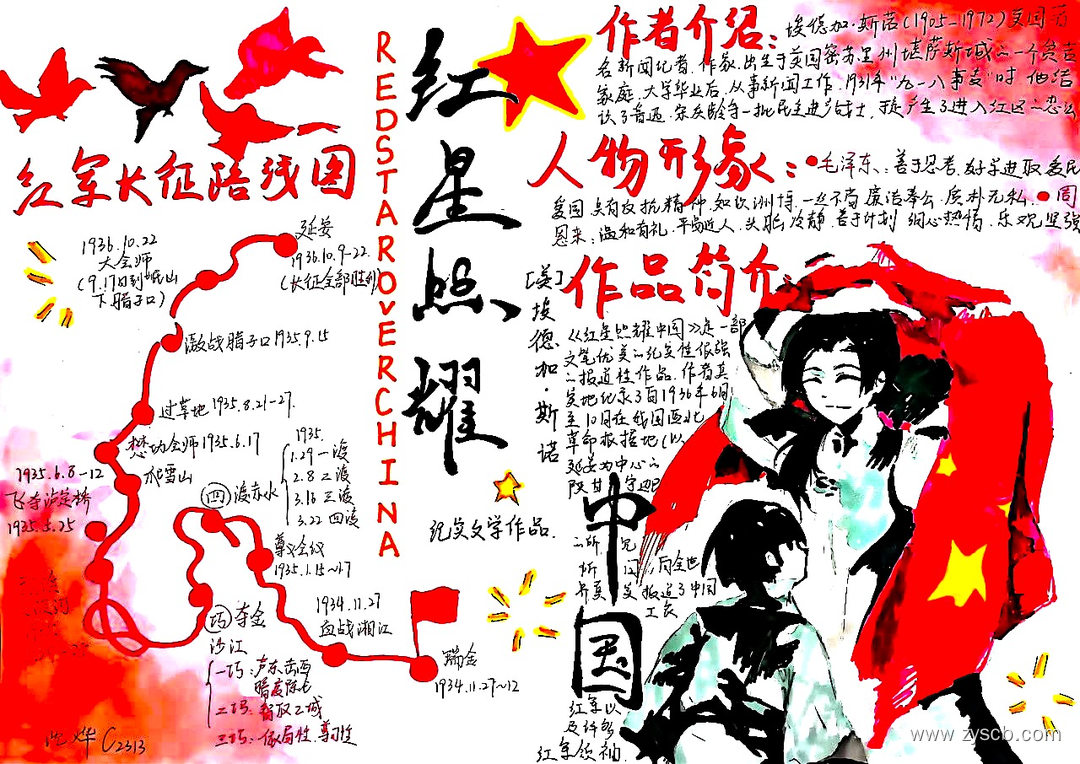 红军长征路线图
延安
1936.10.9-22
(长征全部胜利)
1936.10.22
大会师
下腊子口)
激战腊子口1935.9.15
过草地1935.8.21-27.
懋功会师1935.6.17
爬雪山
1935.6.8-12
飞夺泸定桥
1935.5.25
四渡赤水
1935.
1.29 一渡
2.8 二渡
3.16 三渡
3.22 四渡
遵义会议
1935.1.15~17
巧夺金
沙江
1934.11.27
血战湘江
瑞金
1934.11.27~12
C2313
REDSTAROVERCHINA
红星照耀
中国
[美]埃德加·斯诺
纪实文学作品.
作者介绍:埃德加·斯诺(1905-1972)美国著
名新闻记者,作家.出生于美国密苏里州堪萨斯城的一个贫苦
家庭.大学毕业后,从事新闻工作.1931年"九一八事变"时他结
识了鲁迅、宋庆龄等一批民主进步战士,
人物形象:●毛泽东:善于思考,好学进取,爱民
爱国,具有反抗精神,知识渊博,一丝不苟,廉洁奉公,质朴无私.●周
恩来:温和有礼,平易近人,头脑冷静,善于计划,细心热情,乐观坚强
作品简介:
《红星照耀中国》是一部
文笔优美的纪实性很强
的报道性作品.作者真
实地纪录了自1936年6月
至10月在我国西北
革命根据地(以
延安为中心的
陕甘宁边区
的所见
所闻,向全世
界真实报道了中国
工农
红军以
及许多
红军领袖
www.zyscb.com